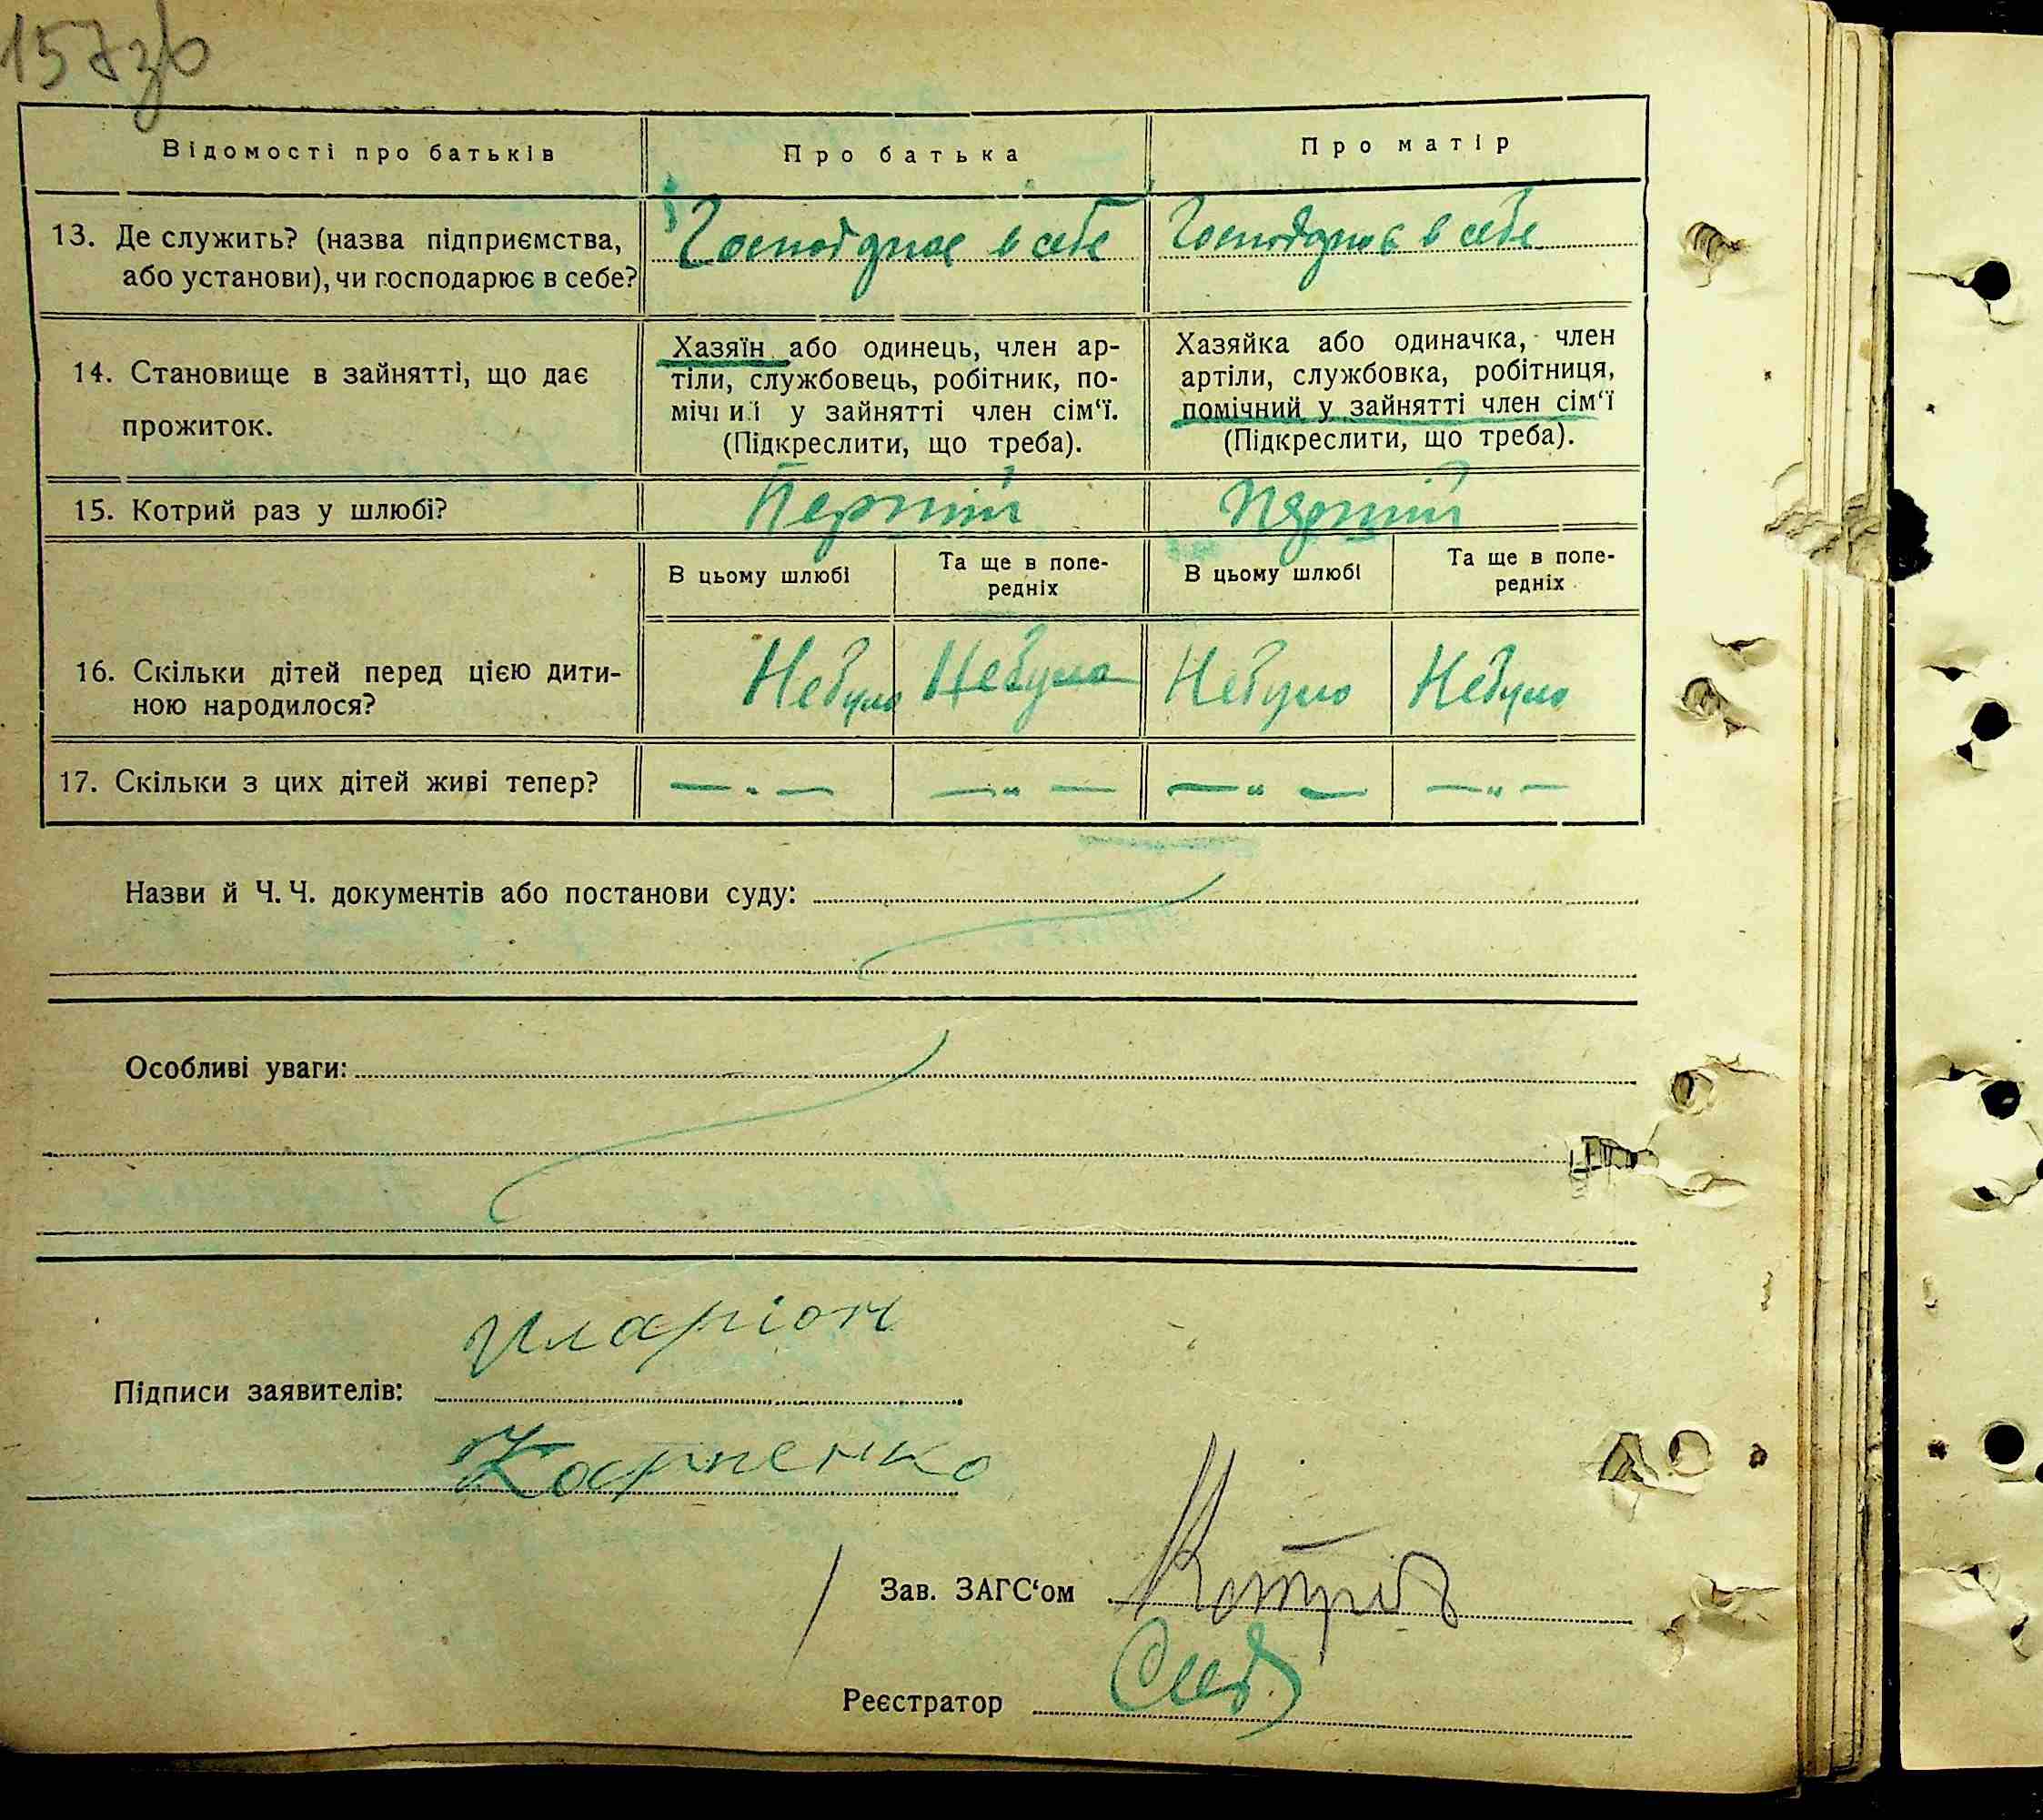 157зв
Відомості про батьків Про батька Про матір
13. Де служить? (назва підприємства, або установи), чи господарює в себе? Господарює в себе Господарює в себе
14. Становище в зайнятті, що дає прожиток.
Хазяїн або одинець, член ар-
тіли, службовець, робітник, по-
мічний у зайнятті член сім‘ї.
(Підкреслити, що треба).
Хазяйка або одиначка, член
артіли, службовка, робітниця,
помічний у зайнятті член сім‘ї
(Підкреслити, що треба).
15. Котрий раз у шлюбі? Перший Перший
В цьому шлюбі Та ще в попе-
редніх В цьому шлюбі Та ще в попе-
редніх
16. Скільки дітей перед цією дити-
ною народилося? Небуло Небуло Небуло Небуло
17. Скільки з цих дітей живі тепер? — „ — — „ — — „ — — „ —
Назви й Ч. Ч. документів або постанови суду:
Особливі уваги:
Иларіон
Підписи заявителів:
Карпенко
Зав. ЗАГС‘ом
Реєстратор